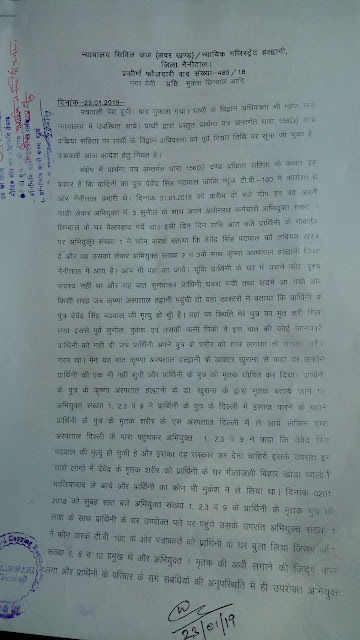 न्यायालय सिविल जज (अवर खण्ड)/न्यायिक मजिस्ट्रेट हल्द्वानी,
जिला नैनीताल।
प्रकीर्ण फौजदारी वाद संख्या-485/18
गंगा देवी प्रति मुकेश छिम्वाल आदि
दिनांक-23.01.2019-
पत्रावली पेश हुयी। वाद पुकारा गया। प्रार्थी के विद्वान अधिवक्ता श्री
न्यायालय में उपस्थित आये। प्रार्थी द्वारा प्रस्तुत प्रार्थना पत्र अन्तर्गत धारा 156(3) दण्ड
प्रक्रिया संहिता पर प्रार्थी के विद्वान अधिवक्ता को पूर्व नियत तिथि पर सुना जा चुका है।
पत्रावली आज आदेश हेतु नियत है।
संक्षेप में प्रार्थना पत्र अन्तर्गत धारा 156(3) दण्ड प्रक्रिया संहिता के कथन इस
प्रकार हैं कि वादिनी का पुत्र देवेंद्र सिंह पटवाल जोकि न्यूज टी.वी.-100 में कार्यरत थे
और नैनीताल प्रभारी थे। दिनांक 31.01.2018 को करीब दो बजे दोप हर वह अपनी
गाडी लेकर अभियुक्त सं. 3 सुनील के साथ अपने अधीनस्थ कर्मचारी अभियुक्त संख्या 1
छिम्वाल के घर बैलपडाव गये थे। इसी दिन दिन रात्रि आठ बजे प्रार्थिनी के मोबाईल
पर अभियुक्त संख्या 1 ने फोन करके बताया कि देवेंद्र सिंह पटवाल की तबियत खराब
है और वह उसको लेकर अभियुक्त संख्या 2 व 3के साथ कृष्णा अस्पताल हल्द्वानी जिला
नैनीताल में आये हैं। आप भी वहां आ जाये। चूंकि प्रार्थिनी के घर में उसमें कोई पुरुष
सदस्य नहीं था और यह बात सुनकर प्रार्थिनी घबरा गयी तथा सदमे आ गयी और
किसी तरह जब कृष्णा अस्पताल हल्द्वानी पहुंची तो वहां डाक्टरों ने बताया कि प्रार्थिनी के
पुत्र देवेंद्र सिंह पटवाल की मृत्यु हो चुकी है। वहां पर स्थिति मेरे पुत्र का मृत शरीर मिला
तथा इससे पूर्व सुनील मुकेश एवं उसकी पत्नी पिंकी ने इस बात की कोई जानकारी
प्रार्थिनी को नहीं दी जब प्रार्थिनी अपने पुत्र के शरीर को हाथ लगाया तो उसका शरीर
गरम था। मैंने यह बात कृष्णा अस्पताल हल्द्वानी के डाक्टर खुराना से कहा पर उन्होंने
प्रार्थिनी की एक भी नहीं सुनी और प्रार्थिनी के पुत्र को मृतक घोषित कर दिया। प्रार्थिनी
के पुत्र के कृष्णा अस्पताल हल्द्वानी के डा. खुराना के द्वारा मृतक बताये जाने पर
अभियुक्त संख्या 1, 2,3 व 9 ने प्रार्थिनी के पुत्र की दिल्ली में इलाज कराने के बहाने
प्रार्थिनी के पुत्र के मृतक शरीर के एम्स अस्पताल दिल्ली में ले आये लेकिन एम्स
अस्पताल दिल्ली के पास पहुंचकर अभियुक्त 1, 2,3 व 9 ने कहा कि देवेंद्र सिंह
पटवाल की मृत्यु हो चुकी है और इसका दाह संस्कार कर देना चाहिये इसके उपरांत इन
चारों लोगों ने देवेंद्र के मृतक शरीर को प्रार्थिनी के घर गीतांजली बिहार खोडा कालोनी
गाजियाबाद ले आये और प्रार्थिनी का फोन भी मुकेश ने ले लिया था। दिनांक 0201
2018 को सुबह सात बजे अभियुक्त संख्या 1, 2,3 व 9 प्रार्थिनी के मृतक पुत्र की
लाश के साथ प्रार्थिनी के घर उपरोक्त पते पर पहुंचे उसके उपरांत अभियुक्त संख्या 1
ने फोन करके टी.वी. 100 के और पत्रकारों को प्रार्थिनी के घर बुला लिया जिसमें
संख्या 5, 8 व 10 प्रमुख थे और अभियुक्त 1 मृतक की अर्थी लगाने की जिद्द करने
लगा और प्रार्थिनी के परिवार के सगे संबंधियों की अनुपस्थिति में ही उपरोक्त अभियुक्त
23/01/19